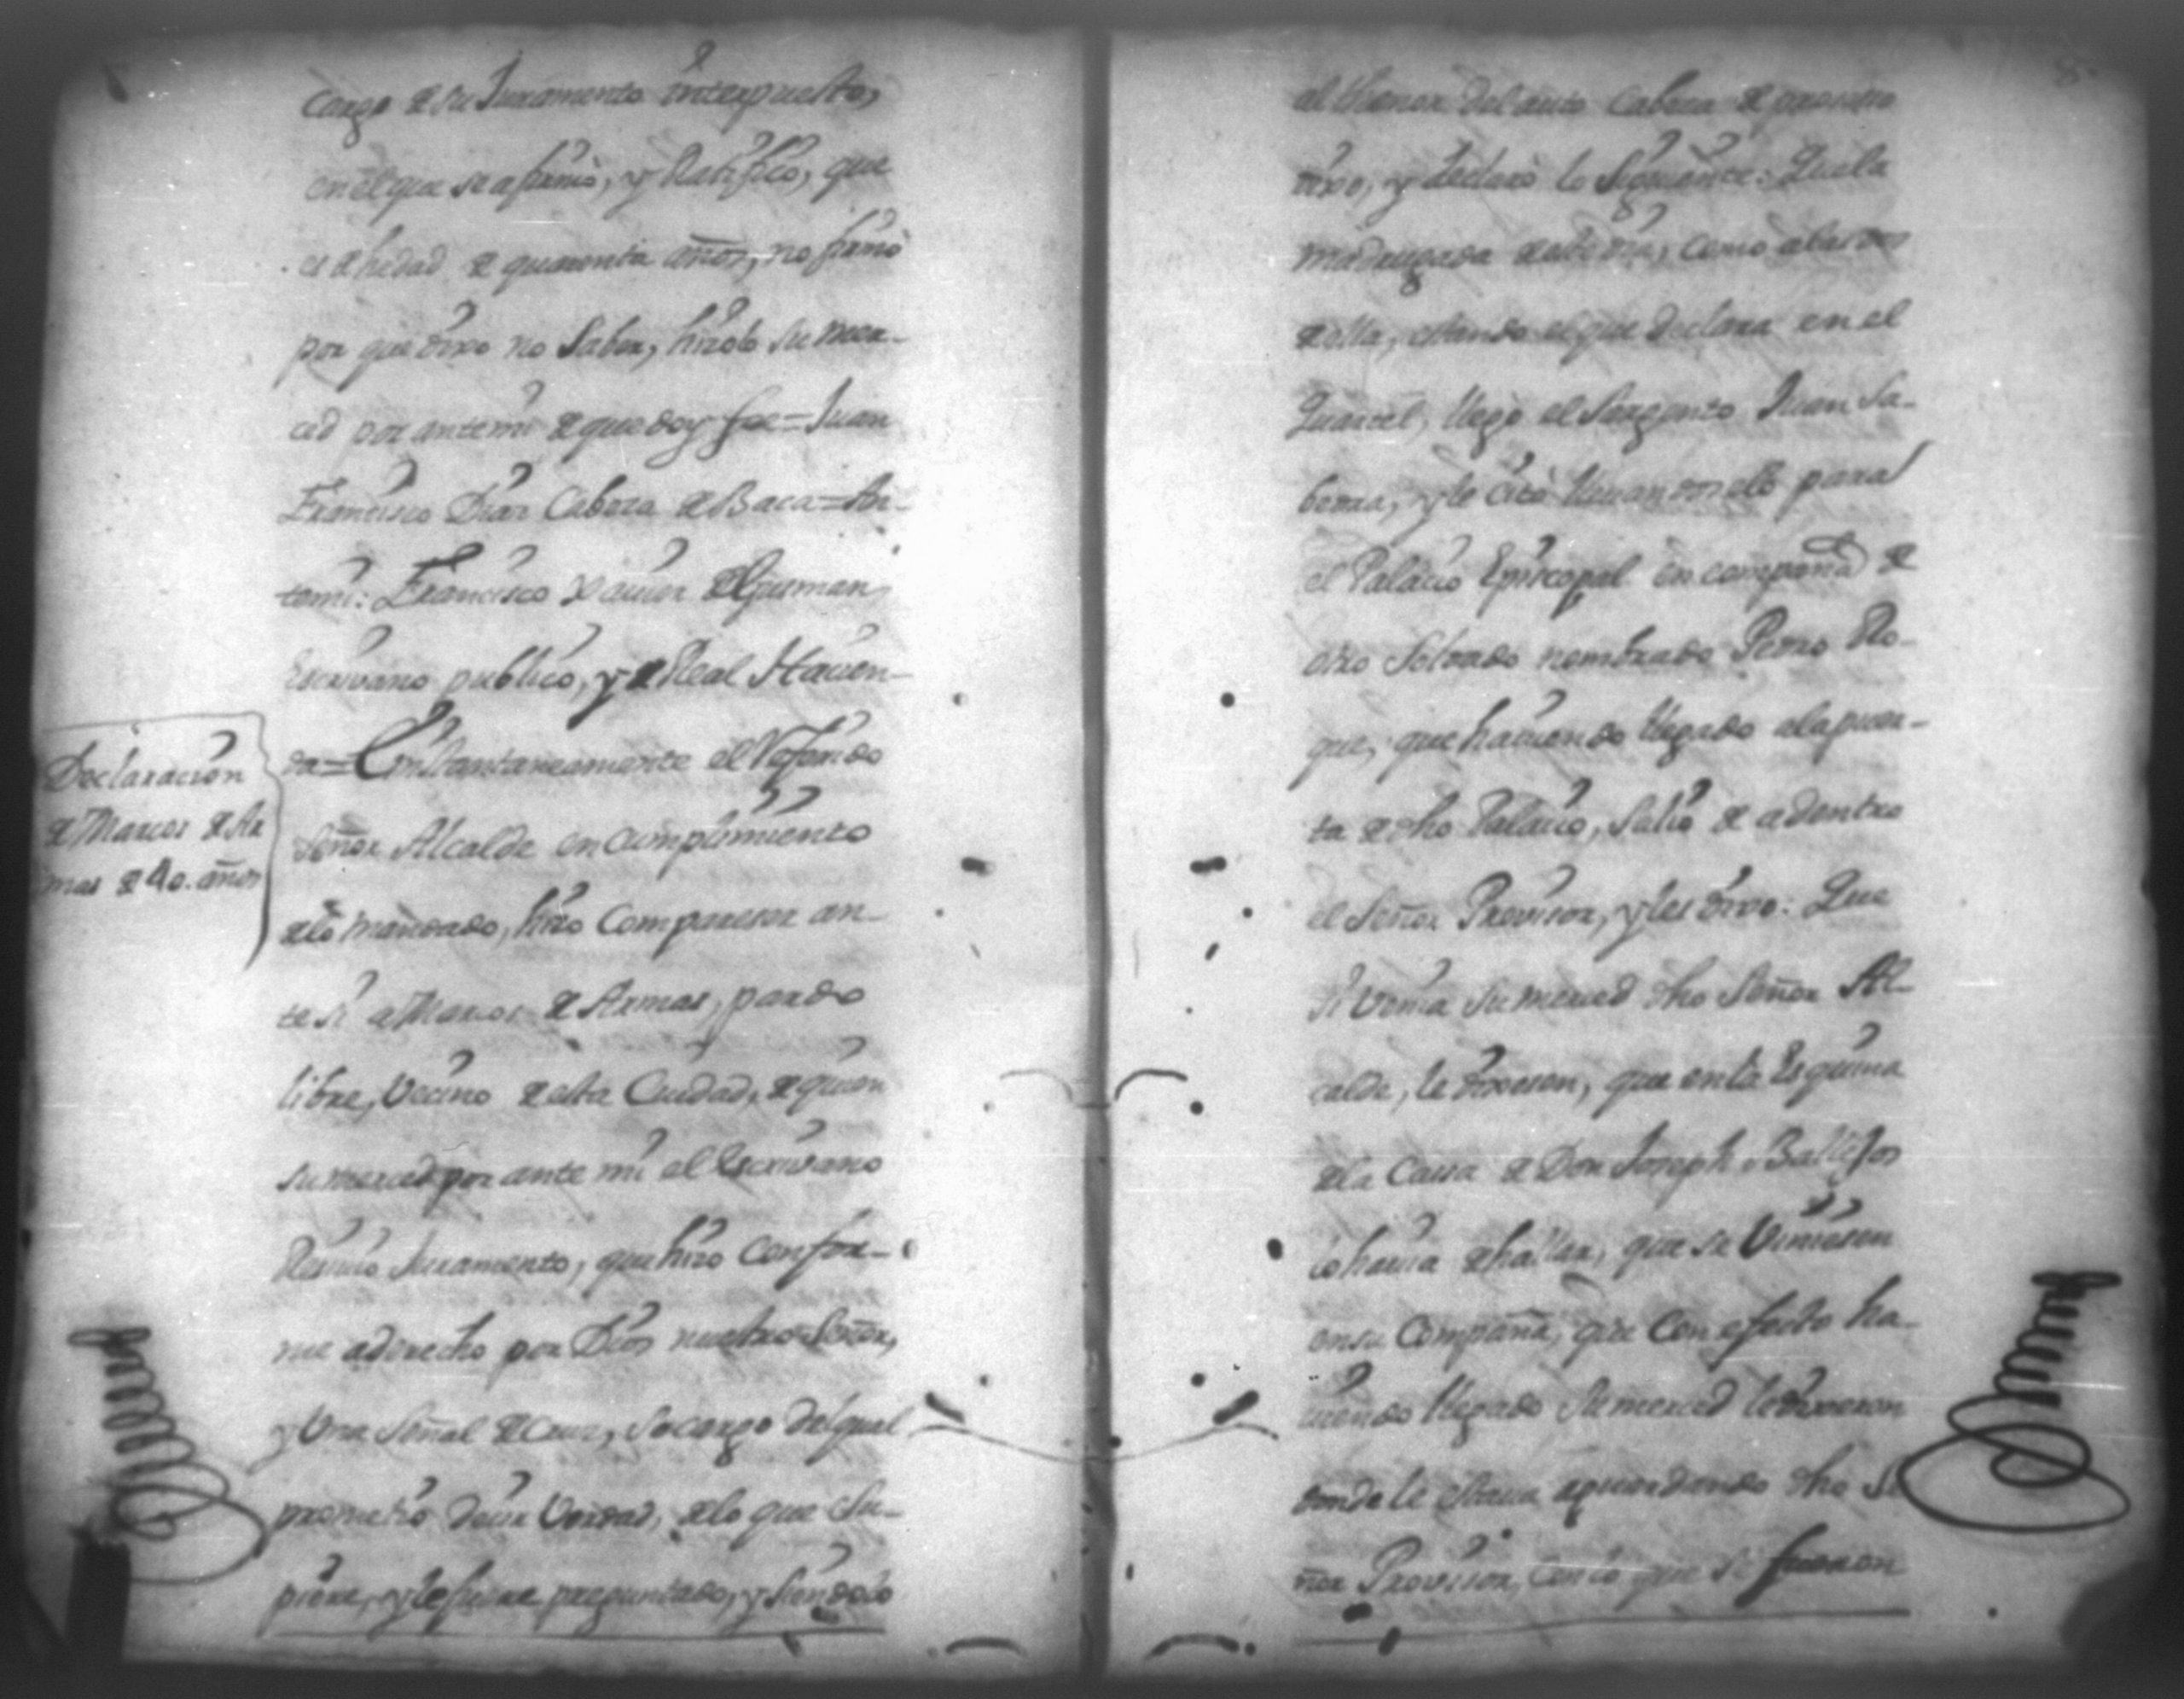 cargo de su Juramento interpuesto,
en el que se afirmò, y Ratificò, que
es de hedad de quarenta años, no firmò
por que dixo no Saber, hizolo su mer-
ced por ante mi de que doy fee = Juan
Francisco Diaz Cabeza de Baca = An-
temi: Francisco Xavier de Guzman,
Escrivano publico, y de Real Hacien-
da = E instantaneamente el Referido
Señor Alcalde en cumplimiento
de lo mandado, hizo Comparecer an-
te si a Marcos de Armas, pardo
libre, Vecino de esta Ciudad, de quien
su merced por ante mi el Escrivano
Reciviò Juramento, que hizo confor-
me a derecho por Dios nuestro Señor,
y Una Señal de Cruz, so cargo del qual
prometiò decir Verdad, de lo que Su-
piere, y le fuere preguntado, y siendolo
Declaracion
de Marcos de Ar
mas de 40. años
8
al thenor del auto Cabeza de proceso
dixo, y declarò lo Siguiente: Que la
madrugada de este dia, como a las dos
de ella, estando el que declara en el
Quartel, llegò el Sargento Juan Sa-
barza, y le citò llevandoselo para
el Palacio Episcopal en compañia de
otro Soldado nombrado Pedro Ro-
que, que haviendo llegado a la puer-
ta de dho Palacio, Saliò de adentro
el Señor Provisor, y les dixo: Que
si Venia su merced dho Señor Al-
calde, le dixesen, que en la Esquina
de la Casa de Don Joseph Ballejos
lo havia de hallar, que se Viniesen
en su Compañia, que con efecto ha-
viendo llegado Su merced le dixeron
donde le estava aguardando dho Se
ñor Provisor, con lo que se fueron